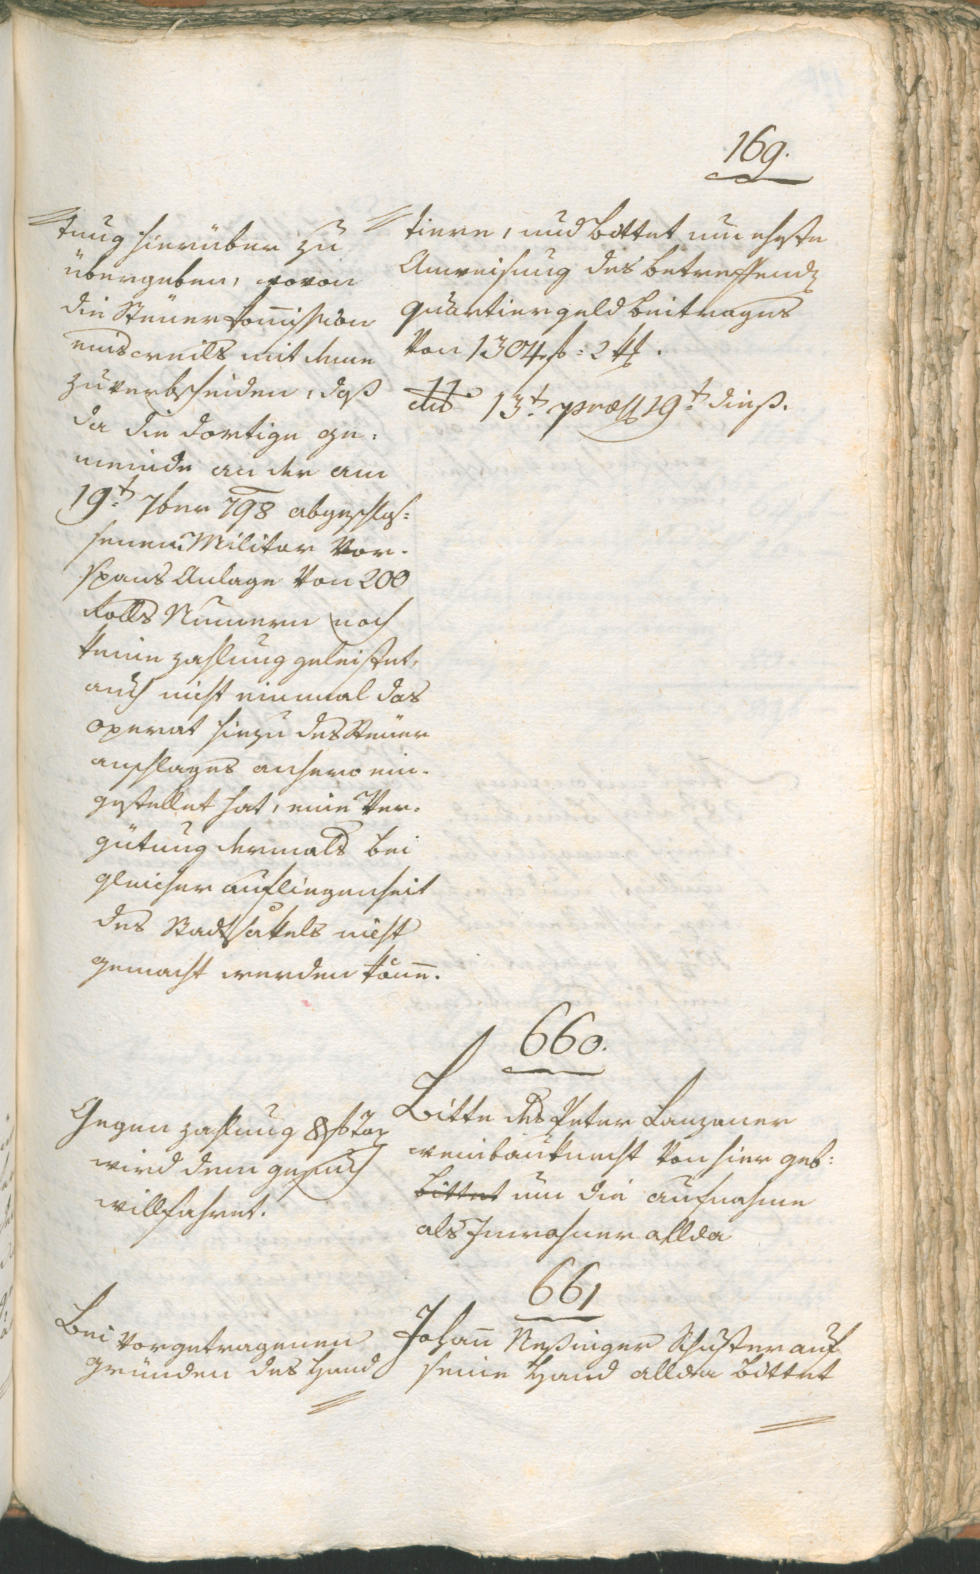 169.
tung hierüber zu
übergeben, wovon
die Steuer Com̄ission
einsweils mit deme
zuverbscheiden, daß
da die dortige ge:
meinde an der am
19t. 7ber 798 abgeschlos:
senen Militar Vor-
spans Anlage von 200
Rolls Numern noch
keine zahlung geleistet,
auch nicht einmal das
operat hiezu des Steuer
anschlages anhero ein-
gestellet hat, eine Ver-
gütung dermals bei
gleicher aufliegenheit
des Stadtsäkels nicht
gemacht werden kön̄e.
tiere, und bittet um ehste
Anweisung des betreffend
quartiergeld beitrages
von 1304 f: 2 x.
13t. præs 19t. dieß.
660.
Gegen zahlung 8 f Tax
wird dem gesuch
willfahret.
Bitte des Peter Lanzaner
weinbauknecht von hier geb:
bittet um die aufnahme
als Inwohner allda
661
Bei vorgetragenen
gründen des Hand
Johan̄ Neßinger Schuster auf
seine Hand allda bittet